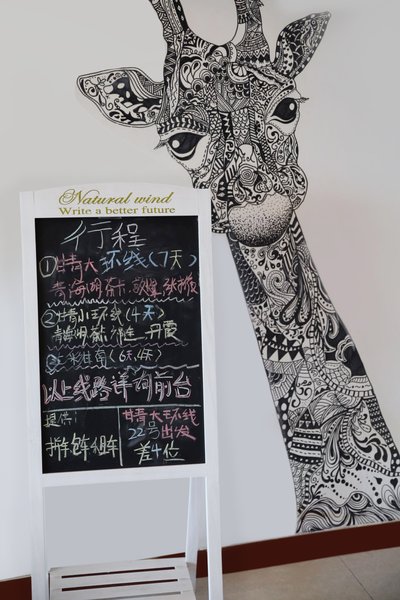 Natural wind
Write a better future
行程
①甘青大环线(7天)
青海湖.茶卡.敦煌.张掖
②甘青小环线(4天)
青海湖.茶卡.丹霞
(6天.4天)
以上线路详询前台
提供:
拼车 租车
甘青大环线
22号出发
差4位